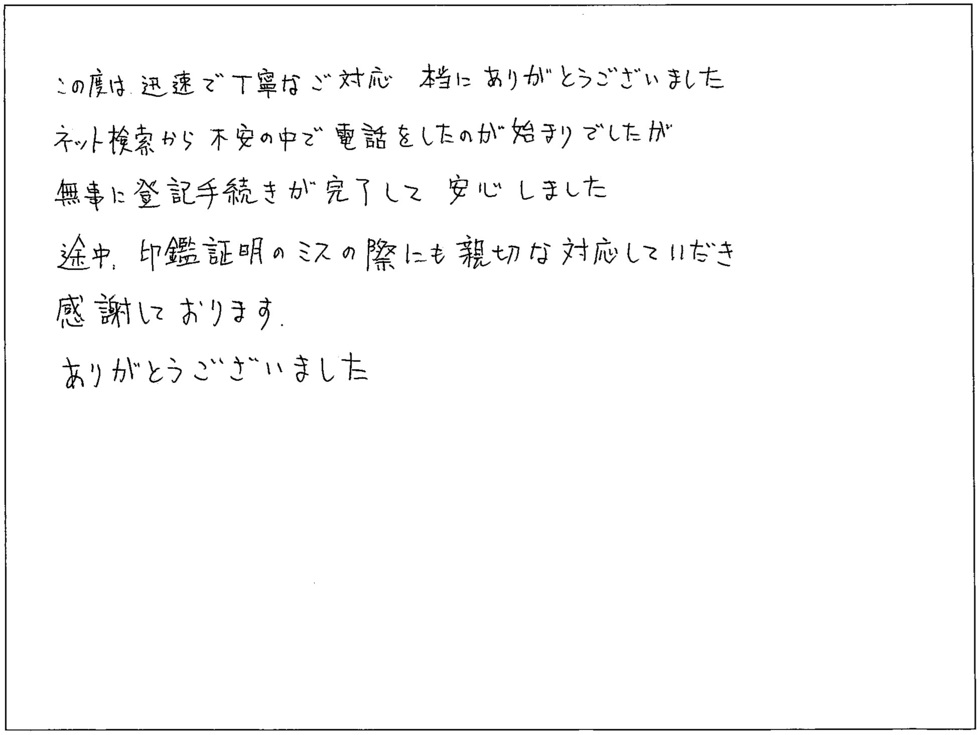 この度は、迅速で丁寧なご対応　本当にありがとうございました
ネット検索から不安の中で電話をしたのが始まりでしたが
無事に登記手続きが完了して　安心しました
途中、印鑑証明のミスの際にも親切な対応していだき
感謝しております.
ありがとうございました